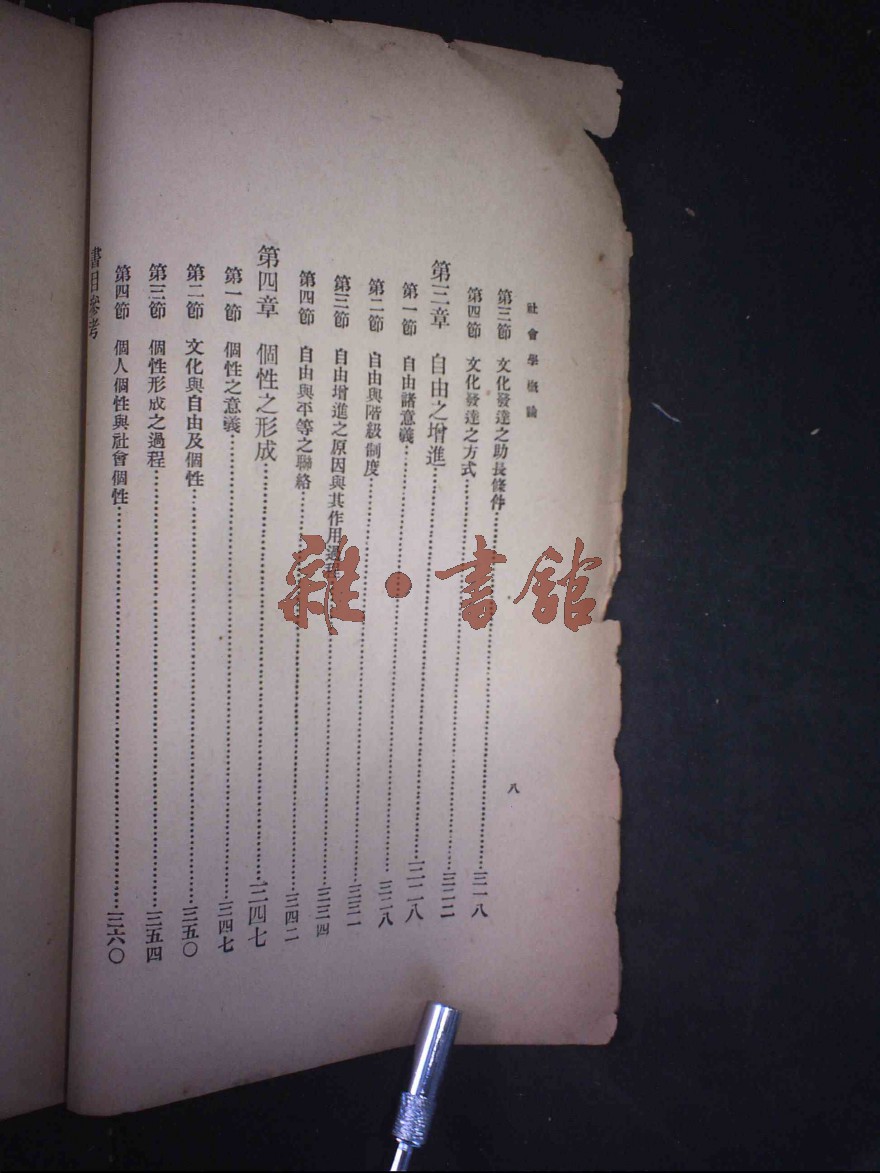 社會學概論
八
第三節 文化發達之助長條件……三一八
第四節 文化發達之方式……三二二
第三章 自由之增進……三二八
第一節 自由諸意義……三二八
第二節 自由與階級制度……三三一
第三節 自由增進之原因與其作用過程……三三四
第四節 自由與平等之聯絡……三四二
第四章 個性之形成……三四七
第一節 個性之意義……三四七
第二節 文化與自由及個性……三五〇
第三節 個性形成之過程……三五四
第四節 個人個性與社會個性……三六〇
書目參考
雜·書館